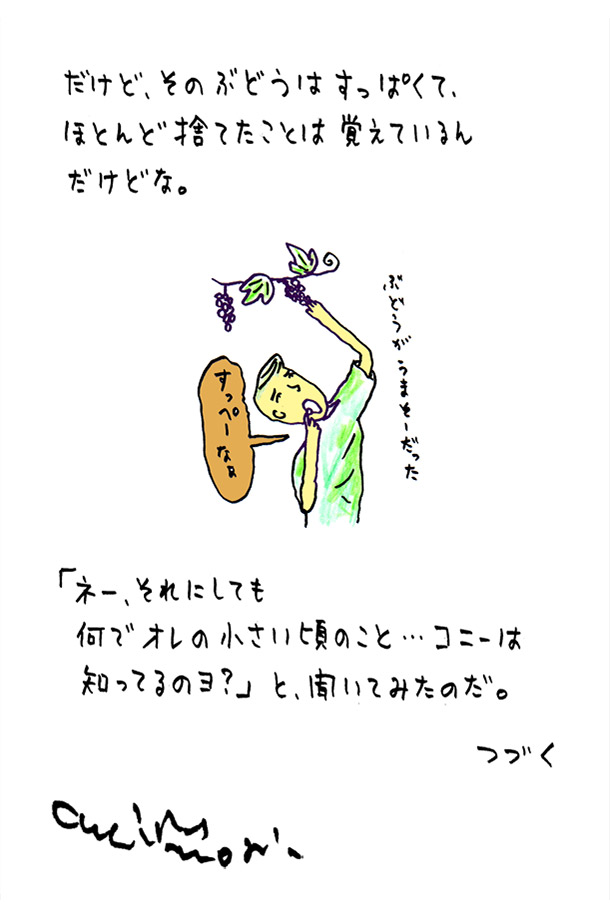 だけど、そのぶどうはすっぱくて、
ほとんど捨てたことは覚えているん
だけどな。
ぶどうがうまそーだった
すっぺーなぁ
「ネー、それにしても
何でオレの小さい頃のこと…コニーは
知ってるのヨ?」と、聞いてみたのだ。
つづく